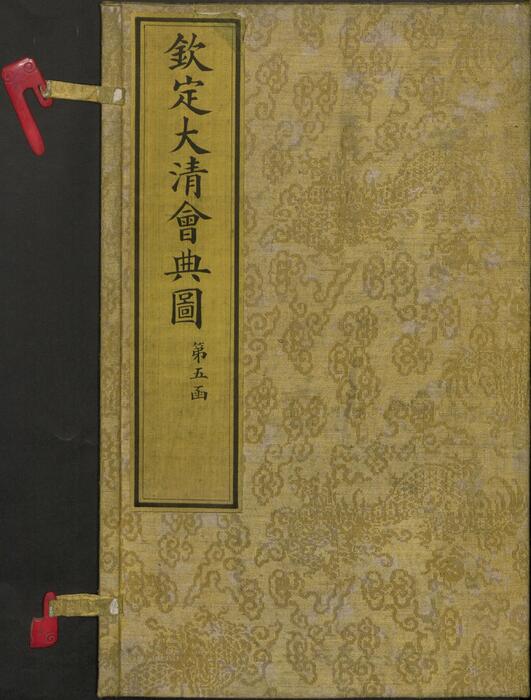 欽定大清會典圖
第五函